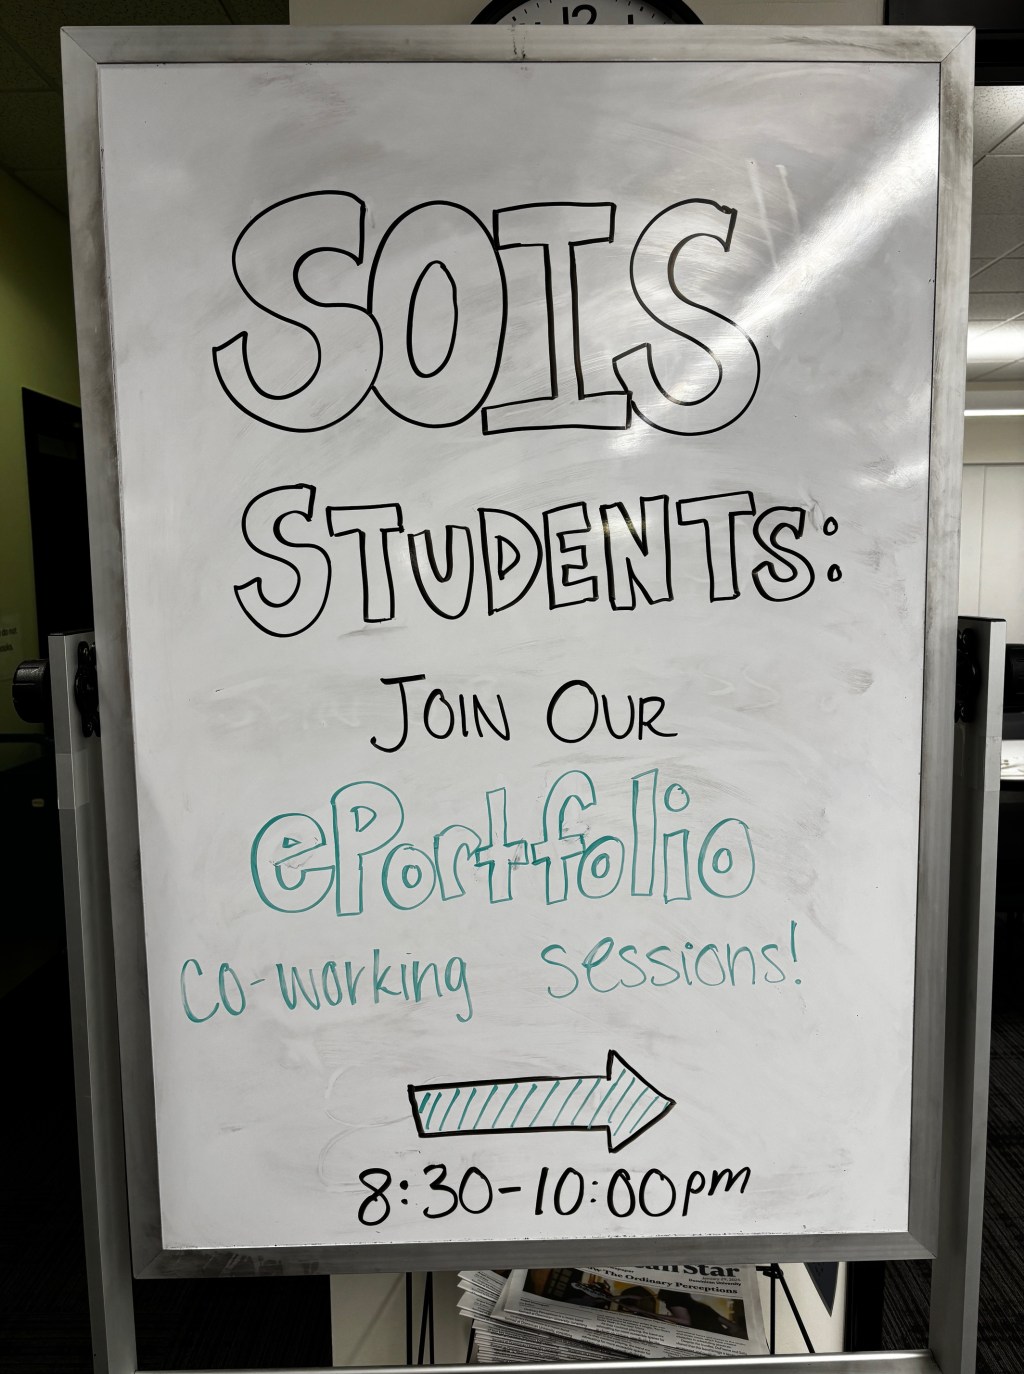 12
SOIS
STUDENTS:
JOIN OUR
ePortfolio
co-working sessions!
8:30-10:00pm
Star
The Ordinary Perceptions